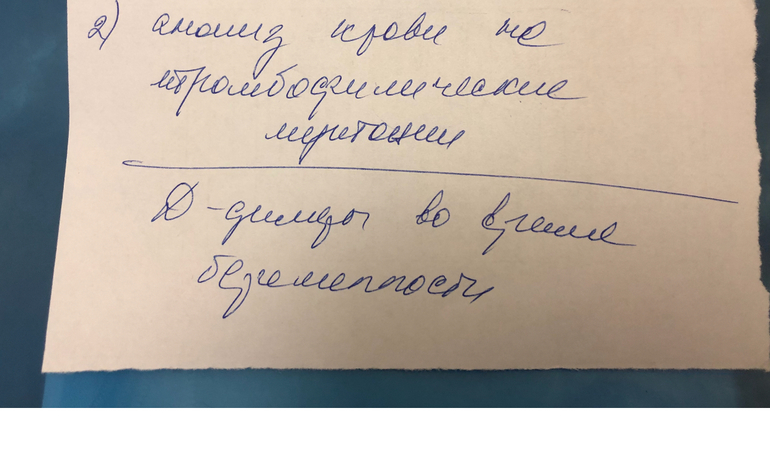 2) анализ крови на
тромбофилические
мутации
Д-димеры во время
беременности